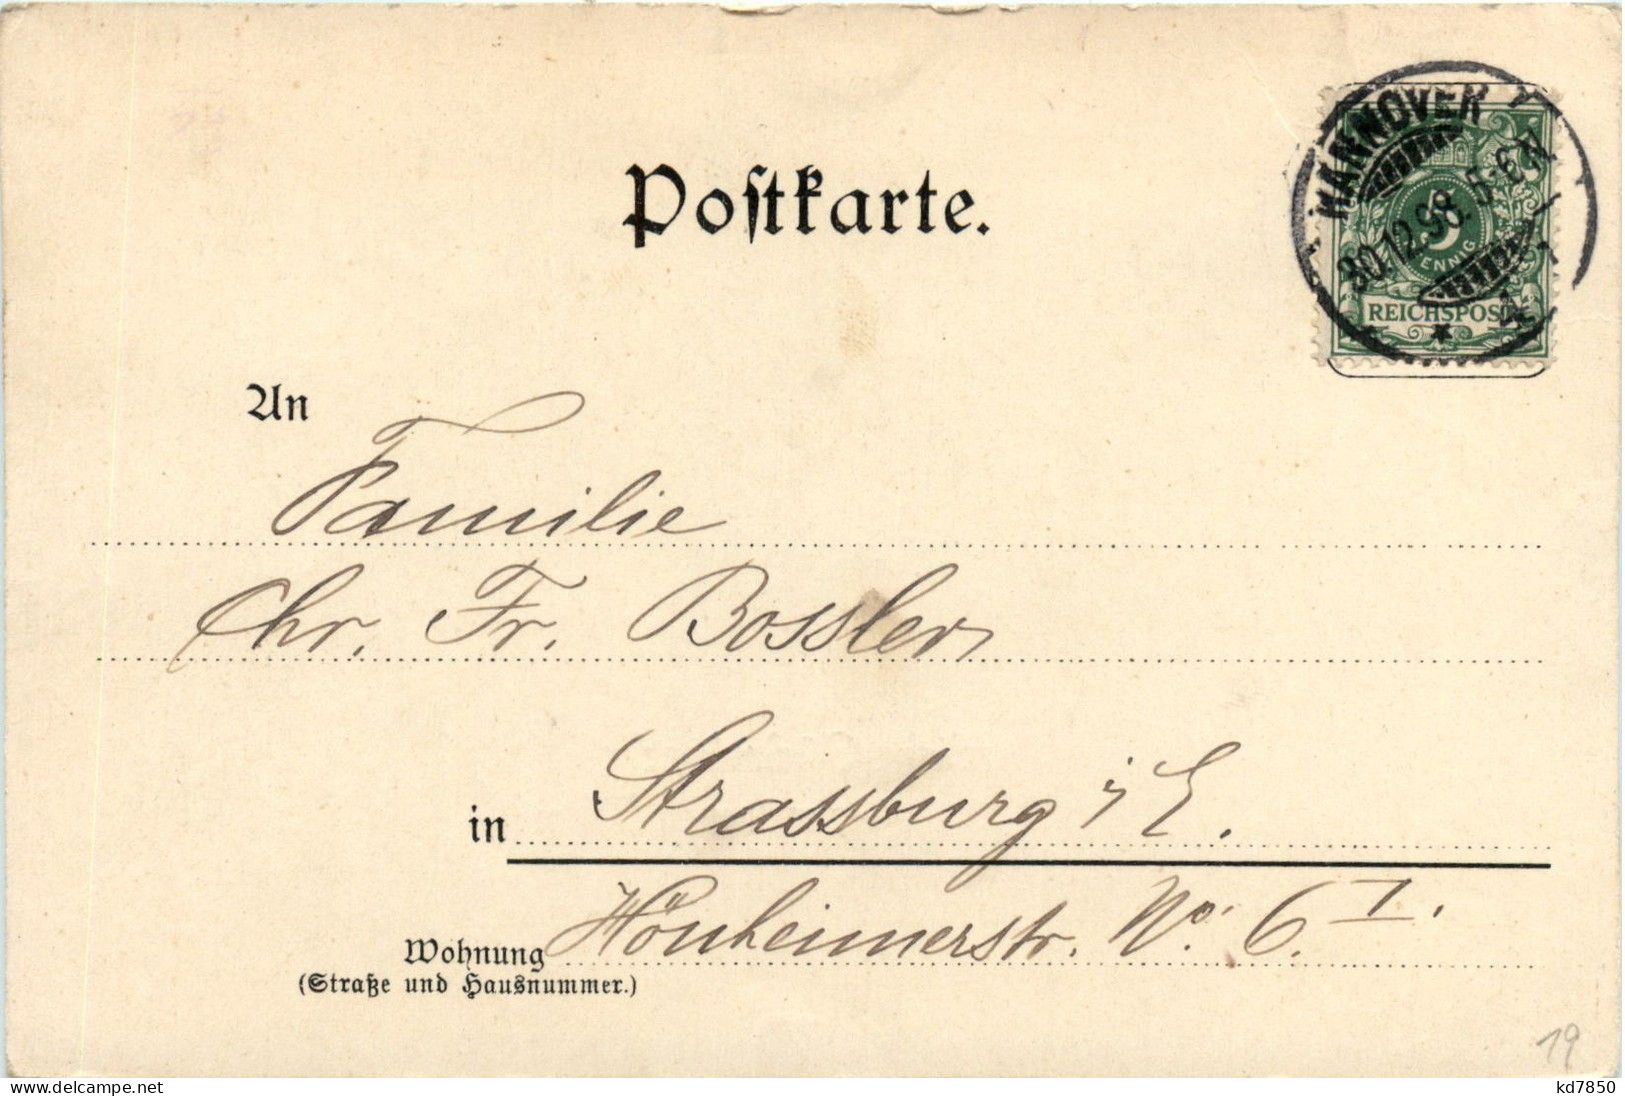 Postkarte.
HANNOVER
30.12.98. 5-6N.
PFENNIG
REICHSPOST
An
Familie
Chr. Fr. Bossler
in Strassburg i/E.
Wohnung Hönheimerstr. No: 6 I.
(Straße und Hausnummer.)
19
www.delcampe.net
kd7850